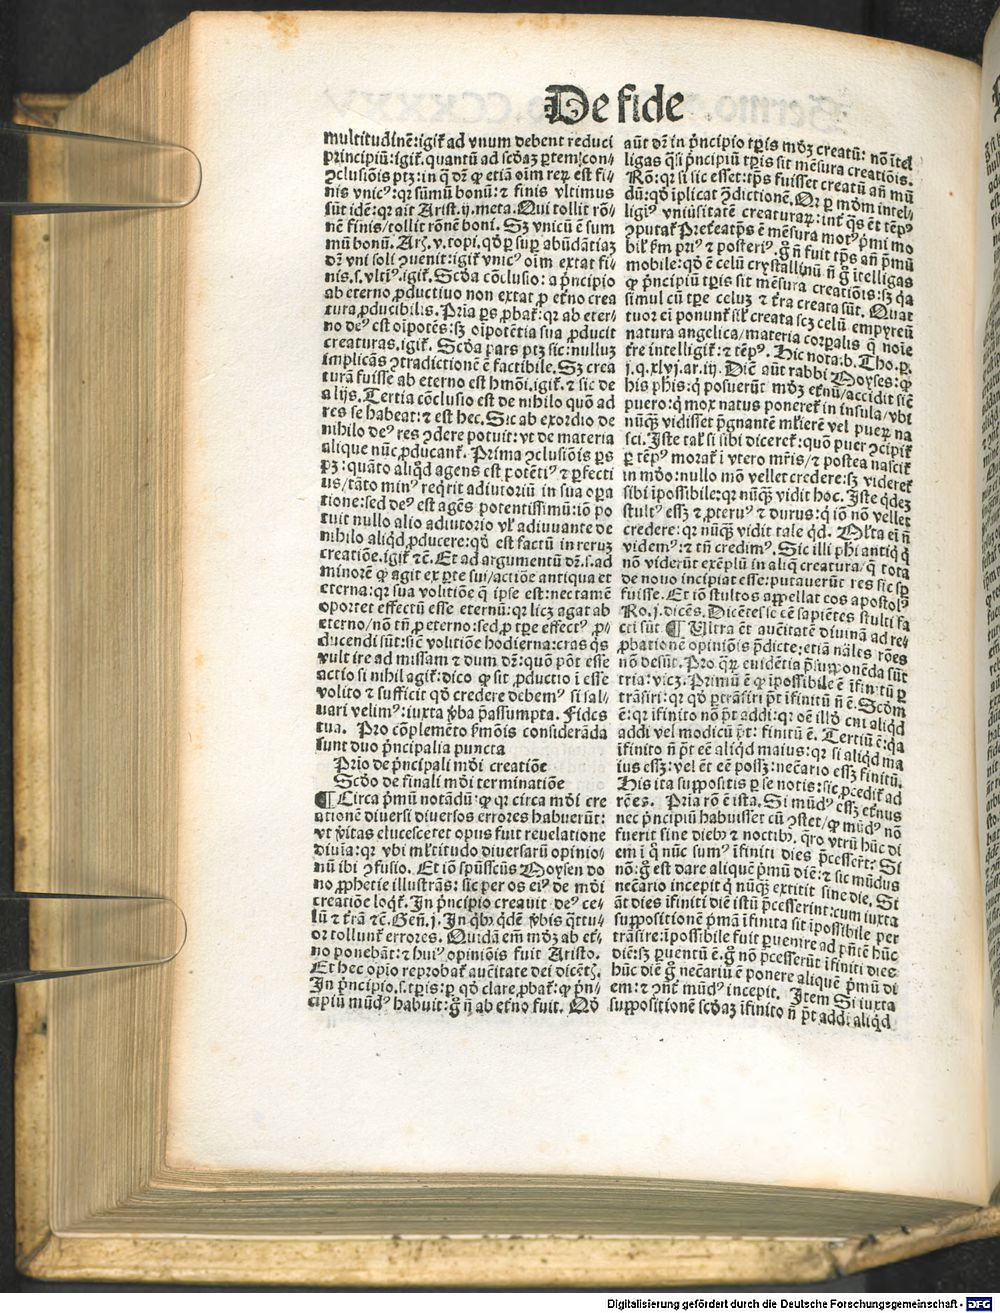 De fide
multitudinē:igit᷑ ad vnum debent reduci
principiū:igit᷑.quantū ad scd̓aȝ ꝑtem:con-
ꝯclusiōis ptȝ:in q̄ dꝛ̄ ꝙ etiā oīm reꝝ est fi-
nis vnicꝰ:qꝛ sūmū bonū:⁊ finis vltimus
sūt idē:qꝛ ait Arist.ij.meta.Qui tollit rō-
nē finis/tollit rōnē boni. Sȝ vnicū ē sum
mū bonū.
dꝛ̄ vni soli ꝯuenit:igit᷑ vnicꝰ oīm extat fi-
nis.s.vltiꝰ.igit᷑.Scd̓a cōclusio: a pͥncipio
ab eterno ꝓductiuo non extat ꝓ et̓no crea
tura ꝓducibilis.Pria ꝑs ꝓbat᷑:qꝛ ab eter-
no deꝰ est oīpotēs:sȝ oīpotētia sua ꝓducit
creaturas.igit᷑. Scd̓a pars ptȝ sic:nulluȝ
implicās ꝯtradictionē ē factibile.Sȝ crea
turā fuisse ab eterno est hmōi.igit᷑.⁊ sic de
alijs.Tertia cōclusio est de nihilo quō ad
res se habeat:⁊ est hec.Sic ab exordio de
nihilo deꝰ res ꝯdere potuit:vt de materia
alique nūc ꝓducant᷑. Prima ꝯclusiōis ꝑs
ptȝ:quāto aliqd̓ agens est potētiꝰ ⁊ ꝑfecti
us/tāto minꝰ reqͥrit adiutoriū in sua oꝑa
tione:sed deꝰ est agēs potentissimū:iō po
tuit nullo alio adiutorio vl᷑ adiuuante de
nihilo aliqd̓ ꝓducere:qd̓ est factū in reruȝ
creatiōe.igit᷑ ⁊c. Et ad argumentū dꝛ̄.s.ad
minorē ꝙ agit ex ꝑte sui/actiōe antiqua et
eterna:qꝛ sua volitiōe q̄ ipse est:nec tamē
oportet effectū esse eternū:qꝛ licȝ agat ab
eterno/nō tn̄ ꝓ eterno:sed ꝓ tꝑe effectꝰ ꝓ-
ducendi sūt:sic volitiōe hodierna:cras qͥs
vult ire ad missam ⁊ dum dꝛ̄:quō pōt esse
actio si nihil agit᷑:dico ꝙ sit ꝓductio ī esse
volito ⁊ sufficit qd̓ credere debemꝰ si sal-
uari velimꝰ:iuxta v̓ba p̄assumpta. Fides
tua. Pro cōplemēto pͥmōis considerāda
sunt duo pͥncipalia puncta
Prīo de pͥncipali mōi creatiōe
Scd̓o de finali mōi terminatiōe
¶ Circa pͥmū notādū:ꝙ qꝛ circa mōi cre
ationē diuersi diuersos errores habuerūt:
vt v̓itas elucesceret opus fuit reuelatione
diuīa:qꝛ vbi ml̓titudo diuersarū opinio-
nū ibi ꝯfusio. Et iō spūssctūs Moysen do
no ꝓphetie illustrās: sic per os eiꝰ de mōi
creatiōe loqt᷑.In pͥncipio creauit deꝰ ce-
lū ⁊ t̓rā ⁊c.Gen̄.j.In qͥbꝫ qͥdē v̓bis q̄ttu-
or tollunt᷑ errores. Quidā em̄ mōȝ ab et̓-
no ponebāt:⁊ huiꝰ opiniōis fuit Aristo.
Et hec opio reprobat᷑ auc̄itate dei dicētꝭ.
In pͥncipio.s.tꝑis:ꝑ qd̓ clare ꝓbat᷑:ꝙ pͥn-
cipiū mūdꝰ habuit:g̊ n̄ ab et̓no fuit. Qd̓
aūt dꝛ̄ in pͥncipio tꝑis mōȝ creatū: nō ītel
ligas qͥsi pͥncipiū tꝑis sit mēsura creatiōis.
Rō:qꝛ si sic esset:tp̄s fuisset creatū an̄ mū
dū:qd̓ īplicat ꝯdictionē.
mobile:qd̓ ē celū crystallinū n̄ g̊ ītelligas
ꝙ pͥncipiū tꝑis sit mēsura creatiōis:sȝ qa
simul cū tꝑe celuȝ ⁊ t̓ra creata sūt. Quat
tuor eī ponunt᷑ sil᷑ creata scȝ celū empyreū
natura angelica/materia corꝑalis q̄ noīe
t̓re intelligit᷑:⁊ tēpꝰ. Hic nota:b.Tho.p.
j.q.xlvj.ar.iij. Diē aūt rabbi Moyses:ꝙ
his phis:qͥ posuerūt mōȝ et̓nū/accidit sic̄
puero:qͥ mox natus poneret᷑ in insula/vbi
nūq̄ȝ vidisset pͥgnantē ml̓ierē vel pueꝝ na
sci. Iste tal᷑ si sibi diceret᷑:quō puer ꝯcipit᷑
ꝑ tēpꝰ morat᷑ ī vtero mr̄is/⁊ postea nascit᷑
in mōo:nullo mō vellet credere:sȝ videret᷑
sibi īpossibile:qꝛ nūq̄ȝ vidit hoc. Iste qͥdeȝ
stultꝰ essȝ ⁊ ꝓteruꝰ ⁊ durus:qͥ iō nō vellet
credere:qꝛ nūq̄ȝ vidit tale qd̓. Ml̓ta eī n̄
videmꝰ:⁊ tn̄ credimꝰ.Sic illi phi antiqͥ qͥ
nō viderūt exēplū in aliq̄ creatura/q̄ tota
de nouo incipiat esse:putauerūt res sic sꝑ
fuisse. Et iō stultos appellat eos apostolꝰ
Ro.j.dicēs.Dicētes se eē sapiētes stulti fa
cti sūt ¶ Vltra ēt auc̄itatē diuinā ad re-
ꝓbationē opiniōis p̄dicte:etiā nāles rōes
nō desūt. Pro qͥꝝ euidētia p̄supponēda sūt
tria:vicȝ.Primū ē ꝙ īpossibile ē īfinitū ꝑ
trāsiri:qꝛ qd̓ ꝑtrāsiri pt īfinitū n̄ ē.Scd̓m
ē:qꝛ īfinito nō pt addi:qꝛ oē illd̓ cui aliqd̓
addi vel modicū pt: finitū ē. Tertiū ē:qa
īfinito n̄ pt eē aliqd̓ maius:qꝛ si aliqd̓ ma
ius essȝ:vel ēt eē possȝ:nec̄ario essȝ finitū.
His ita suppositis ꝑ se notis:sic ꝓcedit᷑ ad
rōes. Pria rō ē ista. Si mūdꝰ essȝ et̓nus
nec pͥncipiū habuisset cū ꝯstet/ꝙ mūdꝰ nō
fuerit sine diebꝫ ⁊ noctibꝫ. q̄ro vtrū hūc di
em ī qͦ nūc sumꝰ īfiniti dies p̄cesserīt: Si
nō:g̊ est dare aliquē pͥmū diē:⁊ sic mūdus
nec̄ario incepit qͥ nūq̄ȝ extitit sine die. Si
āt dies īfiniti diē istū p̄cesserint:cum iuxta
suppositionē pͥmā īfinita sit īpossibile per
trāsire:īpossibile fuit ꝑuenire ad p̄ntē hūc
diē:sȝ ꝑuentū ē.g̊ nō p̄cesserūt īfiniti dies
hūc diē g̊ nec̄ariū ē ponere aliquē pͥmū di
em:⁊ ꝯn̄t mūdꝰ incepit. Item Si iuxta
suppositionē scd̓aȝ īfinito n̄ pt addi aliqd̓
Digitalisierung gefördert durch die Deutsche Forschungsgemeinschaft - DFG